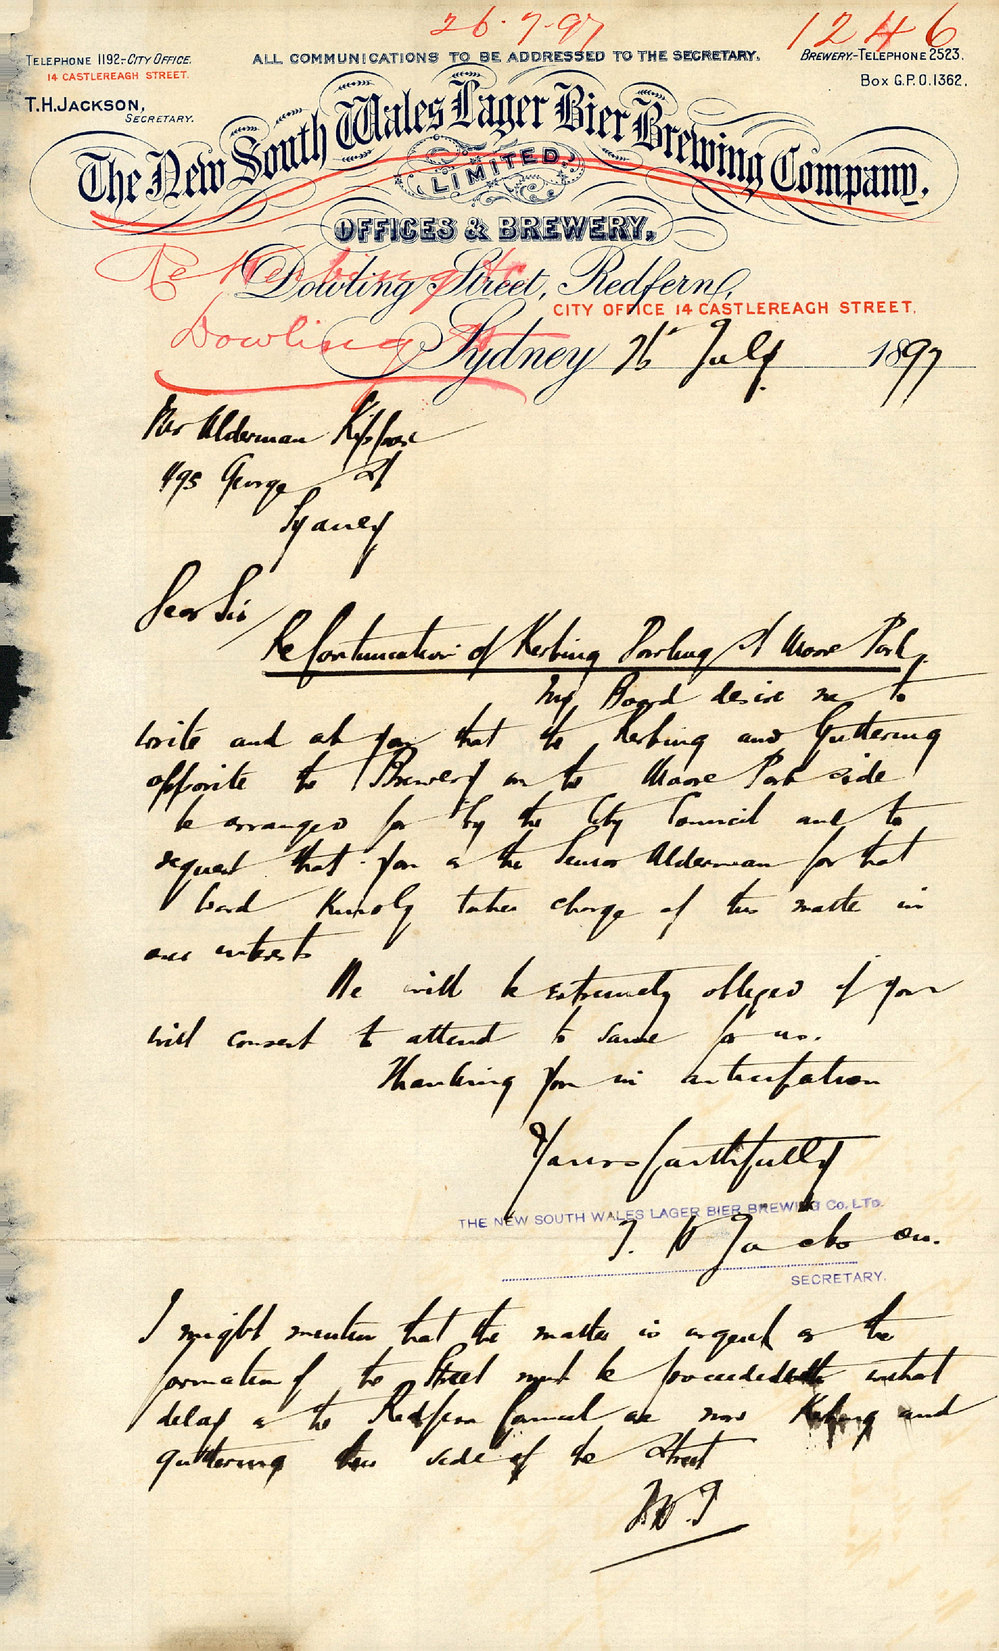 26.7.97
1246
TELEPHONE 1192.-CITY OFFICE.
14 CASTLEREAGH STREET.
ALL COMMUNICATIONS TO BE ADDRESSED TO THE SECRETARY.
BREWERY.-TELEPHONE 2523.
BOX G.P.O. 1362.
T.H. JACKSON,
SECRETARY.
The New South Wales Lager Bier Brewing Company,
LIMITED.
OFFICES & BREWERY,
Dowling Street, Redfern,
CITY OFFICE 14 CASTLEREAGH STREET.
Re Kerbing etc
Dowling St
Sydney 26th July 1897
Mr Alderman
495 George St
Sydney
Dear Sir
Re Continuation of Kerbing Dowling St Moore Park.
My Board desire me to
write and ask you that the Kerbing and Guttering
opposite the Brewery on the Moore Park side
be arranged for by the City Council and to
request that you as the Senior Alderman for that
ward Kindly take charge of this matter in
our interests
We will be extremely obliged if you
will consent to attend to same for us.
Thanking you in anticipation
Yours faithfully
THE NEW SOUTH WALES LAGER BIER BREWING CO. LTD.
T. H Jackson.
SECRETARY.
I might mention that the matter is urgent as the
formation of the Street must be proceeded with without
delay as the Redfern Council are now Kerbing and
guttering this side of the Street
THJ